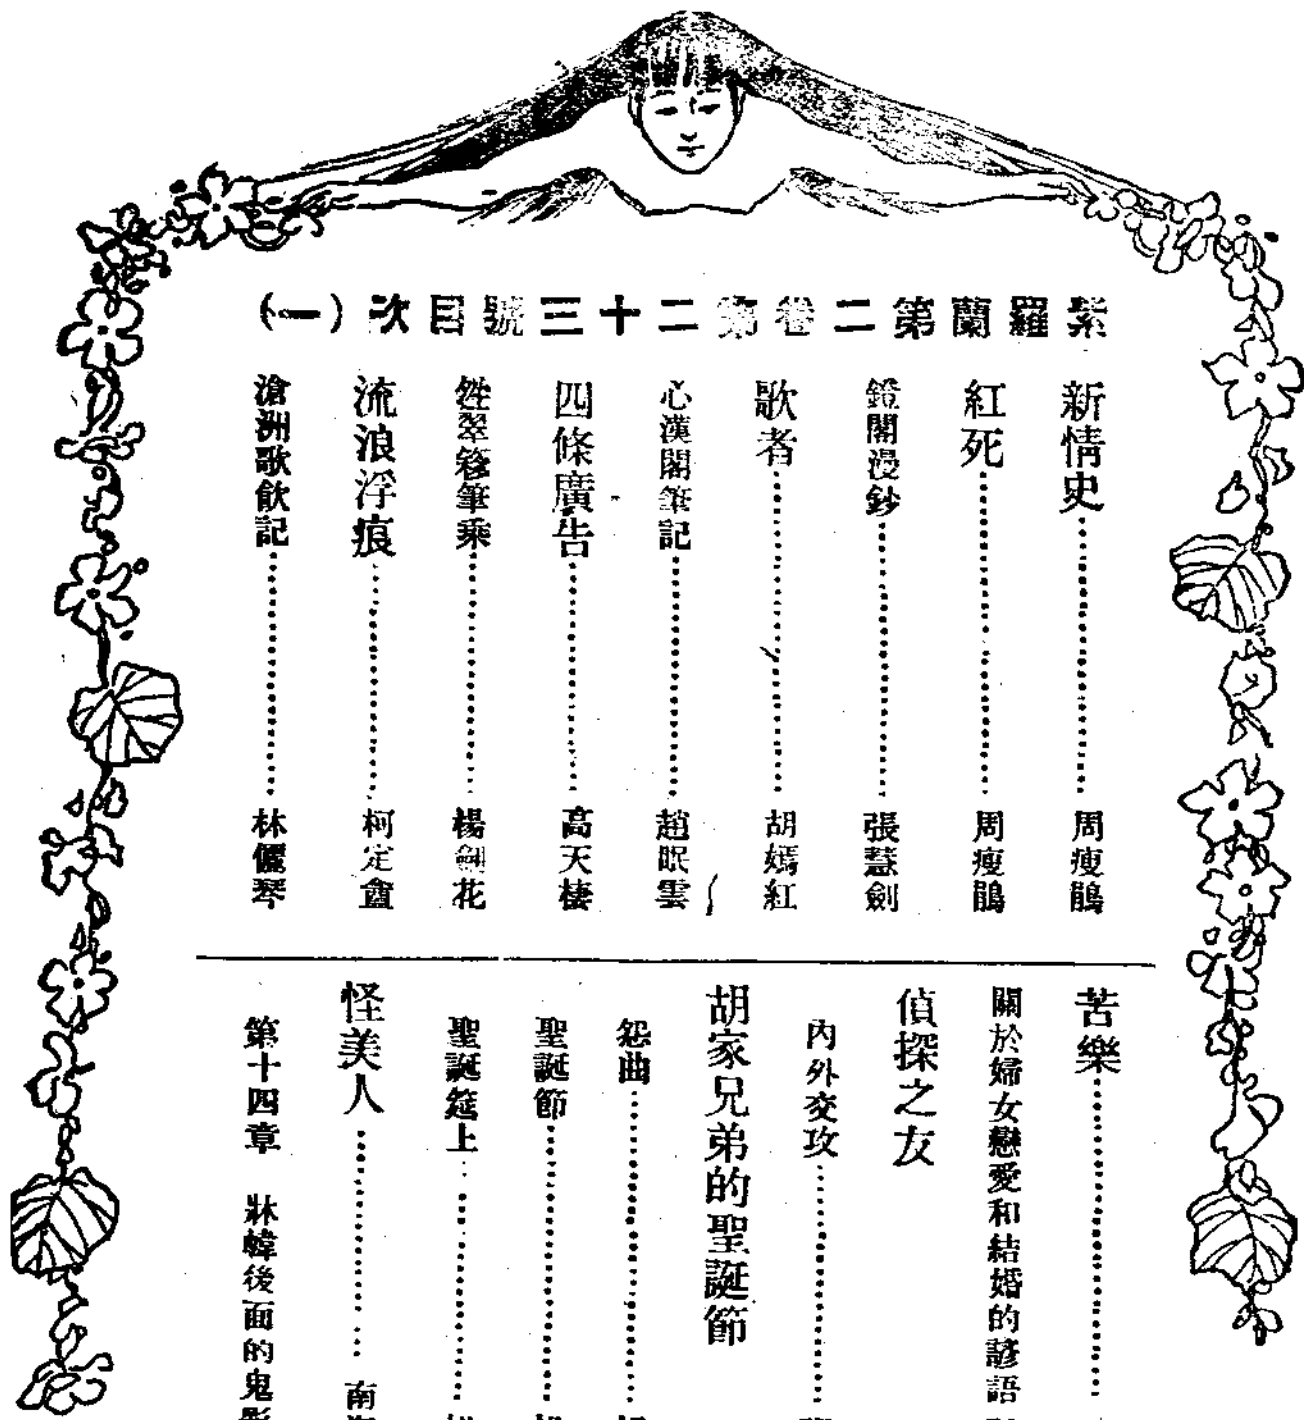 紫羅蘭第二卷第二十三號目次（一）
新情史 周瘦鵑
紅死 周瘦鵑
鐙閣漫鈔 張慧劍
歌者 胡嫣紅
心漢閣筆記 趙眠雲
四條廣告 高天棲
翠簃筆乘 楊劍花
流浪浮痕 柯定盦
滄洲歌飲記 林儷琴
苦樂
關於婦女戀愛和結婚的諺語
偵探之友
內外交攻
胡家兄弟的聖誕節
怨曲
聖誕節
聖誕筵上
怪美人 南
第十四章 牀幃後面的鬼影